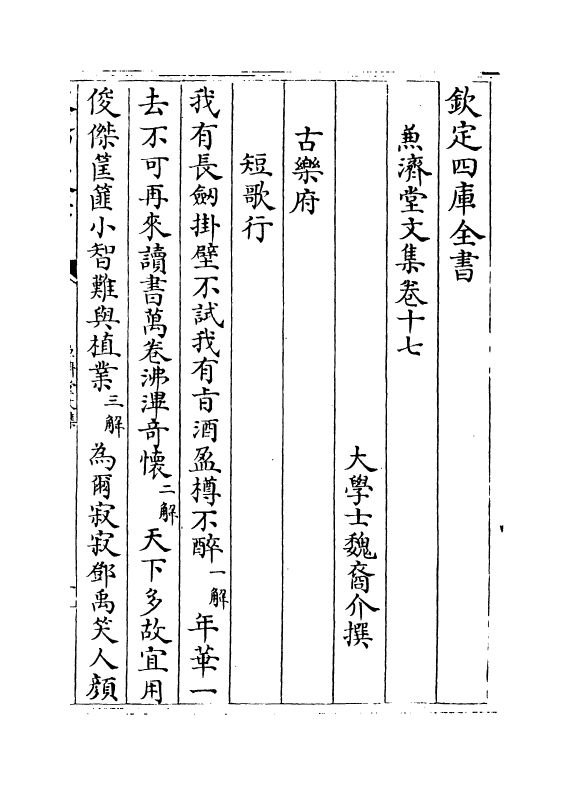 欽定四庫全書
兼濟堂文集卷十七
大學士魏裔介撰
古樂府
短歌行
我有長劒掛壁不試我有㫖酒盈樽不醉一解年華一
去不可再來讀書萬卷沸渾奇懷二解天下多故宜用
俊傑筐篚小智難與植業三解為爾寂寂鄧禹笑人顔